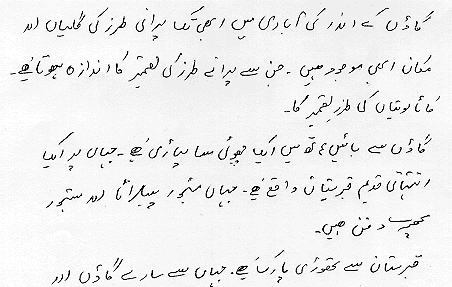 گاؤں کے اندر کی آبادی میں ابھی تک پرانی طرز کی گلیاں اور
مکان ابھی موجود ہیں۔ جن سے پرانے طرز کی تعمیر کا اندازہ ہوتا ہے۔
کی طرز تعمیر کا۔
گاؤں سے بائیں ہاتھ میں ایک چھوٹی سی پہاڑی ہے۔ جہاں پر ایک
انتہائی قدیم قبرستان واقع ہے۔ جہاں مشہور اور مشہور
دفن ہیں۔
قبرستان سے تھوڑی ہے۔ جہاں سے سارے گاؤں اور